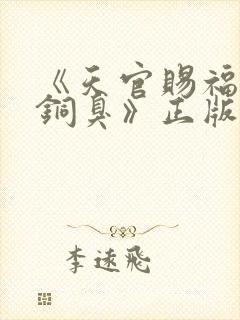 《天官赐福
铜臭》正版
李遠飛